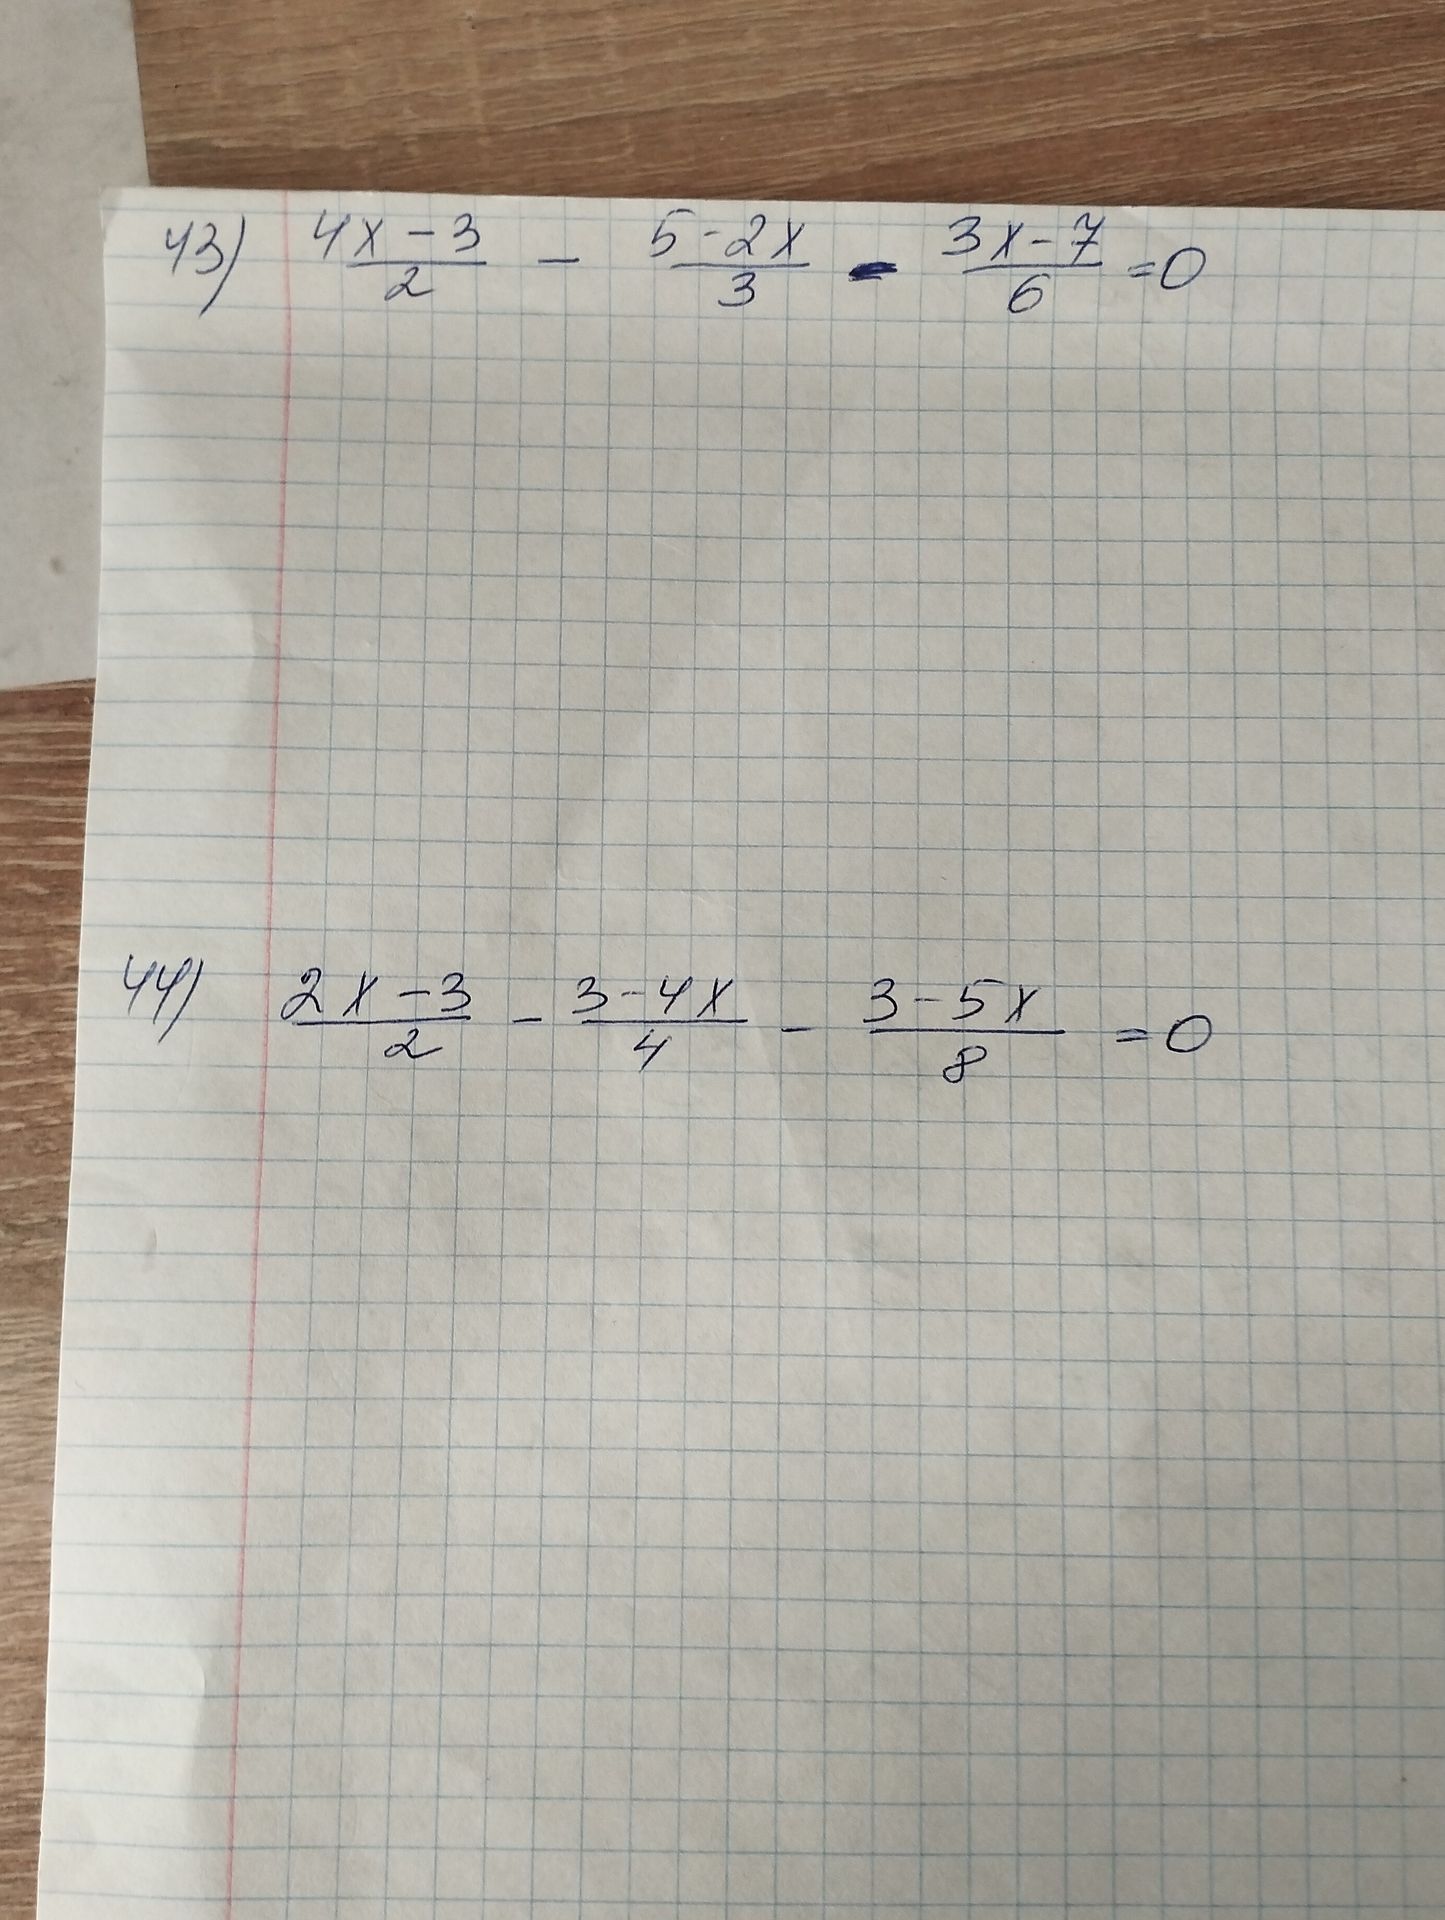 43) (4x-3)/2 - (5-2x)/3 - (3x-7)/6 =0
44) (2x-3)/2 - (3-4x)/4 - (3-5x)/8 =0